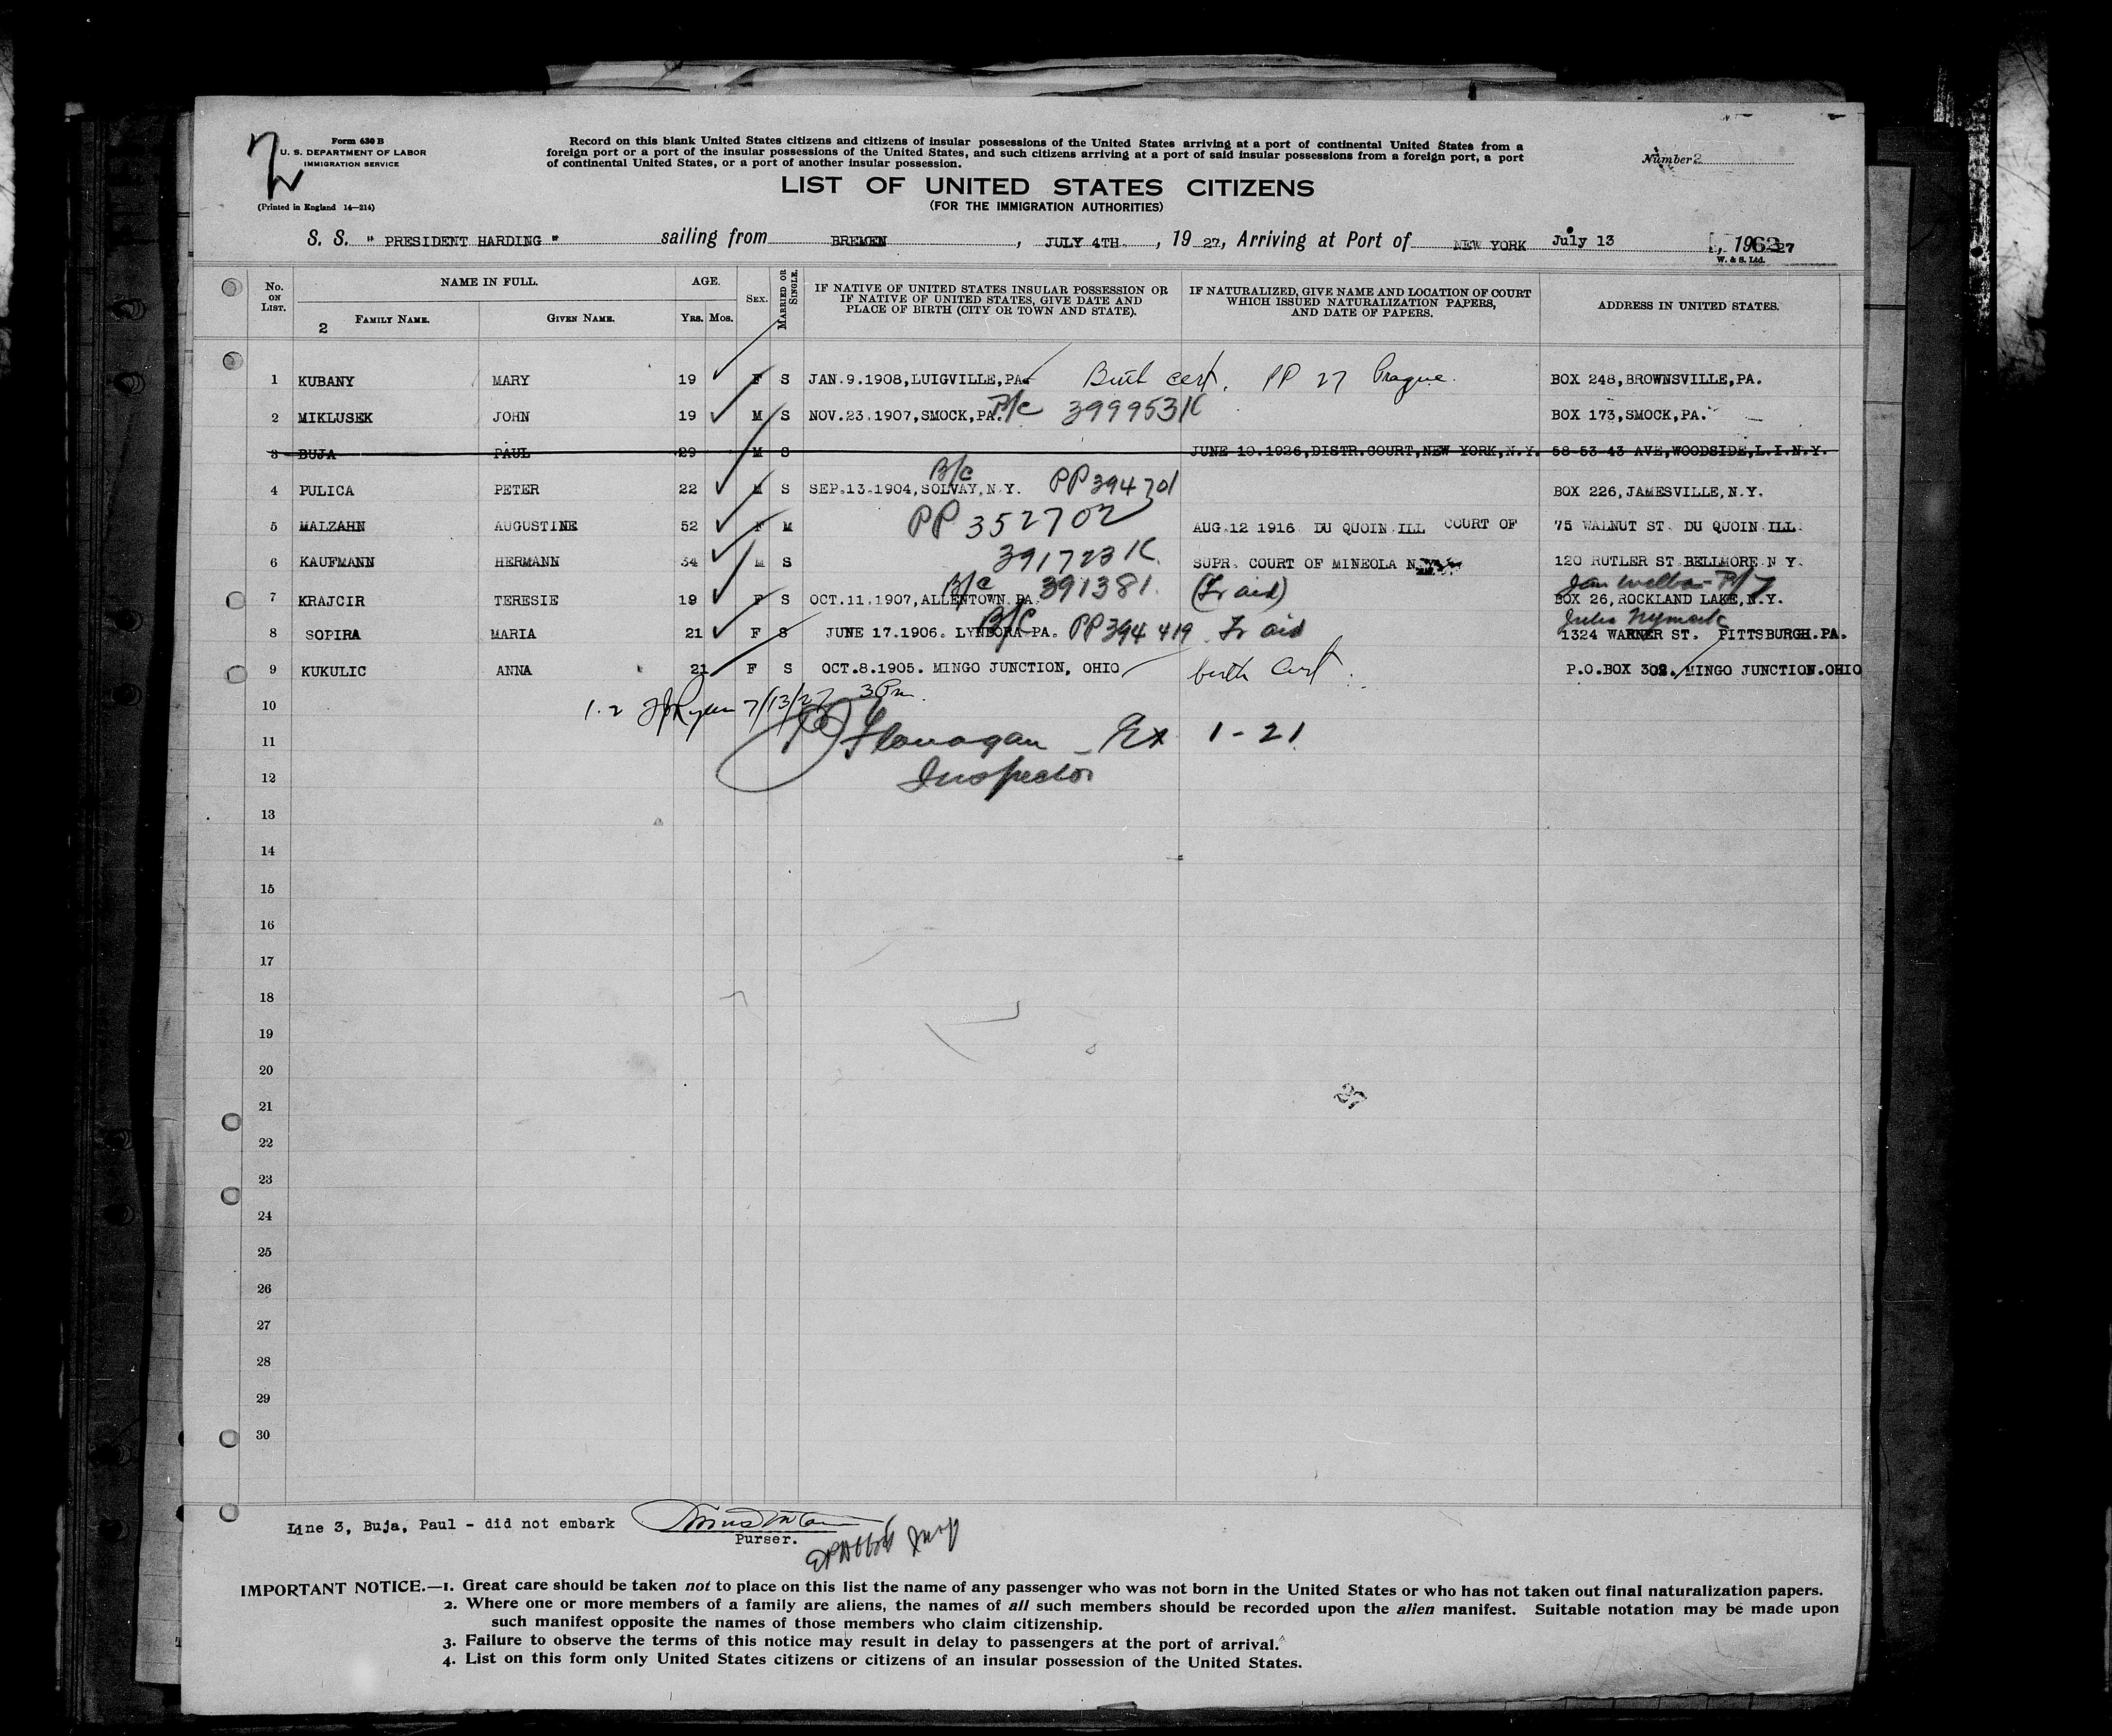 2
Form 630 B
U. S. DEPARTMENT OF LABOR
IMMIGRATION SERVICE
(Printed in England 14—214)
Record on this blank United States citizens and citizens of insular possessions of the United States arriving at a port of continental United States from a
foreign port or a port of the insular possessions of the United States, and such citizens arriving at a port of said insular possessions from a foreign port, a port
of continental United States, or a port of another insular possession.
Number 2
LIST OF UNITED STATES CITIZENS
(FOR THE IMMIGRATION AUTHORITIES)
S. S. " PRESIDENT HARDING " sailing from BREMEN, JULY 4TH., 19 27, Arriving at Port of NEW YORK July 13, 1927
W. & S. Ltd.
No. ON LIST. NAME IN FULL. AGE. SEX. MARRIED OR SINGLE. IF NATIVE OF UNITED STATES INSULAR POSSESSION OR IF NATIVE OF UNITED STATES, GIVE DATE AND PLACE OF BIRTH (CITY OR TOWN AND STATE). IF NATURALIZED, GIVE NAME AND LOCATION OF COURT WHICH ISSUED NATURALIZATION PAPERS, AND DATE OF PAPERS. ADDRESS IN UNITED STATES.
2 FAMILY NAME. GIVEN NAME. YRS. MOS.
1 KUBANY MARY 19 F S JAN.9.1908,LUIGVILLE,PA. Birth cert. PP 27 Prague. BOX 248,BROWNSVILLE,PA.
2 MIKLUSEK JOHN 19 M S NOV.23.1907,SMOCK,PA. B/C 399953K BOX 173,SMOCK,PA.
3 BUJA PAUL 29 M S JUNE 10.1926,DISTR.COURT,NEW YORK,N.Y. 58-53-43 AVE,WOODSIDE,L.I.N.Y.
4 PULICA PETER 22 M S SEP.13.1904,SOLVAY,N.Y. B/C PP 394701 BOX 226,JAMESVILLE,N.Y.
5 MALZAHN AUGUSTINE 52 F M PP 352702 AUG.12 1916 DU QUOIN ILL COURT OF 75 WALNUT ST. DU QUOIN ILL.
6 KAUFMANN HERMANN 34 M S 391723 K SUPR. COURT OF MINEOLA N. 120 RUTLER ST BELLMORE N Y.
7 KRAJCIR TERESIE 19 F S OCT.11.1907,ALLENTOWN PA. B/C 391381. (Tr aid) BOX 26,ROCKLAND LAKE,N.Y.
8 SOPIRA MARIA 21 F S JUNE 17.1906. LYNDORA PA. B/C PP 394 419 Tr aid 1324 WARNER ST. PITTSBURGH.PA.
9 KUKULIC ANNA 21 F S OCT.8.1905. MINGO JUNCTION, OHIO birth Cert. P.O.BOX 302. MINGO JUNCTION.OHIO
10 1.2 7/13/27 3 Pm.
11 Flanagan - Ex 1 - 21
12 Inspector
13
14
15
16
17
18
19
20
21
22
23
24
25
26
27
28
29
30
Line 3, Buja, Paul - did not embark
Purser.
IMPORTANT NOTICE.—1. Great care should be taken not to place on this list the name of any passenger who was not born in the United States or who has not taken out final naturalization papers.
2. Where one or more members of a family are aliens, the names of all such members should be recorded upon the alien manifest. Suitable notation may be made upon
such manifest opposite the names of those members who claim citizenship.
3. Failure to observe the terms of this notice may result in delay to passengers at the port of arrival.
4. List on this form only United States citizens or citizens of an insular possession of the United States.